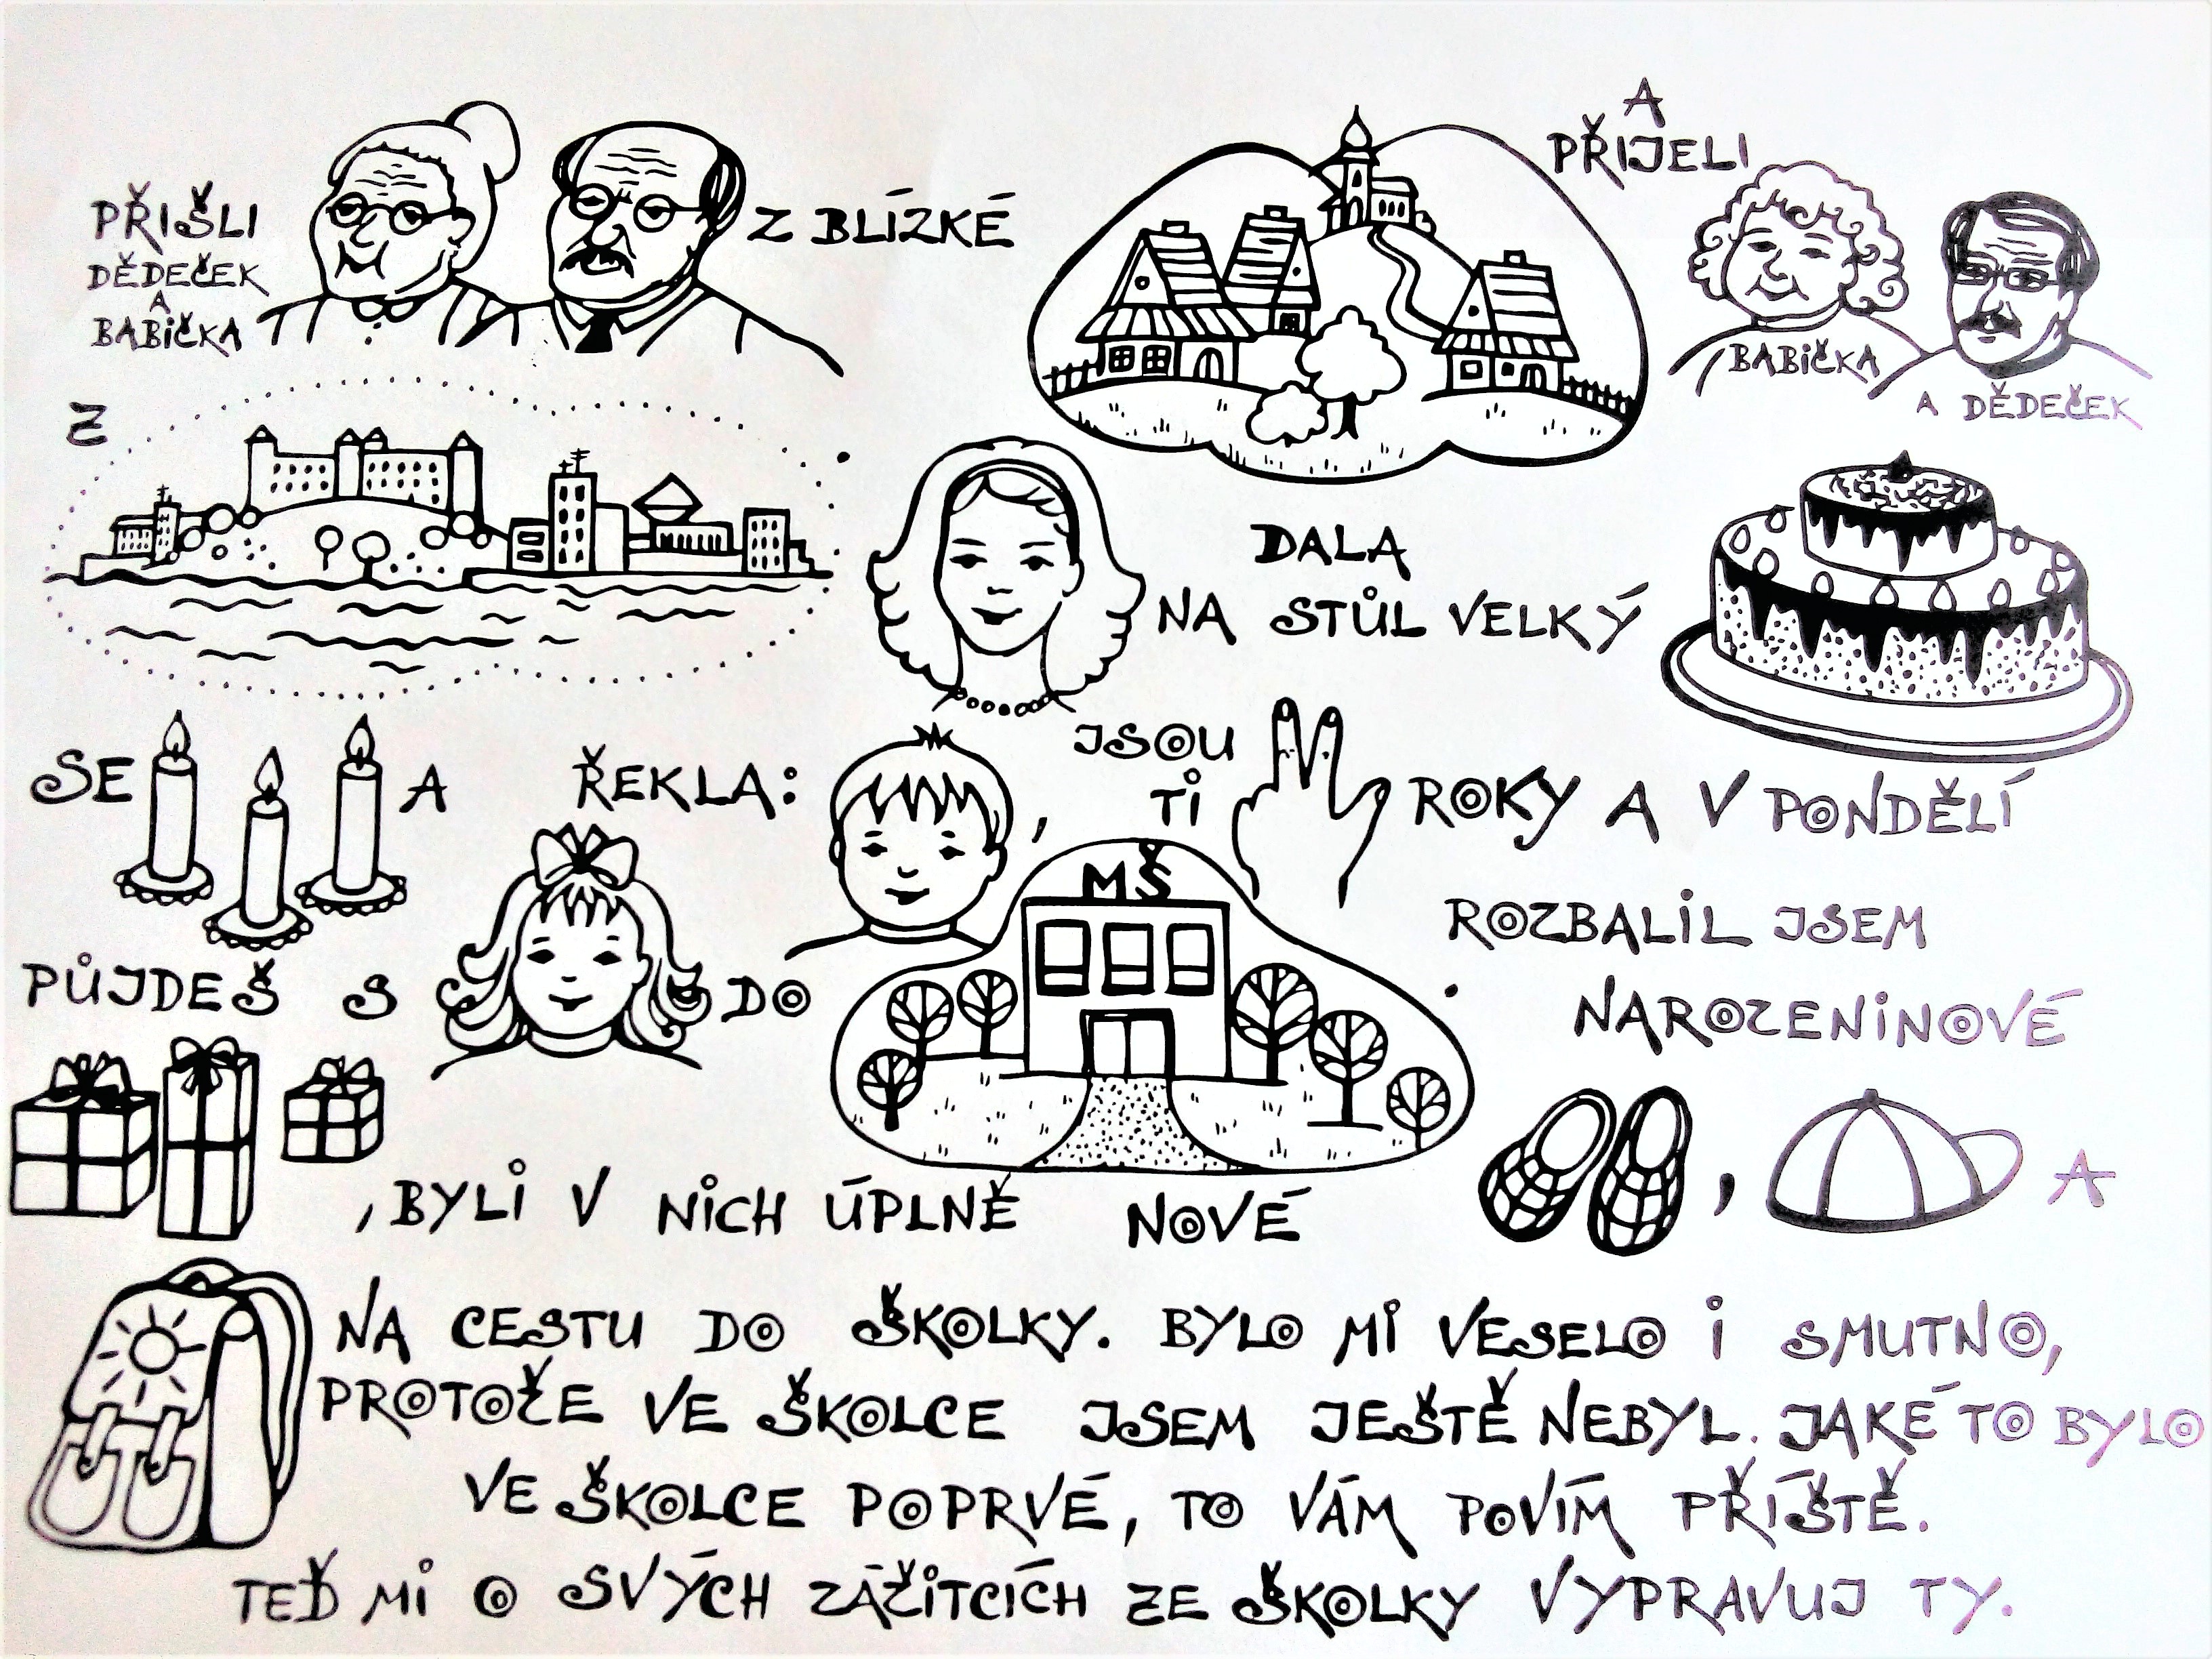 PŘIŠLI
DĚDEČEK
A
BABIČKA
Z BLÍZKÉ
A
PŘIJELI
BABIČKA
A DĚDEČEK
Z
.
DALA
NA STŮL VELKÝ
SE
A
ŘEKLA:
,
JSOU
TI
ROKY A V PONDĚLÍ
PŮJDEŠ S
DO
MŠ
.
ROZBALIL JSEM
NAROZENINOVÉ
, BYLI V NICH ÚPLNĚ NOVÉ
,
A
NA CESTU DO ŠKOLKY. BYLO MI VESELO I SMUTNO,
PROTOŽE VE ŠKOLCE JSEM JEŠTĚ NEBYL. JAKÉ TO BYLO
VE ŠKOLCE POPRVÉ, TO VÁM POVÍM PŘÍŠTĚ.
TEĎ MI O SVÝCH ZÁŽITCÍCH ZE ŠKOLKY VYPRAVUJ TY.